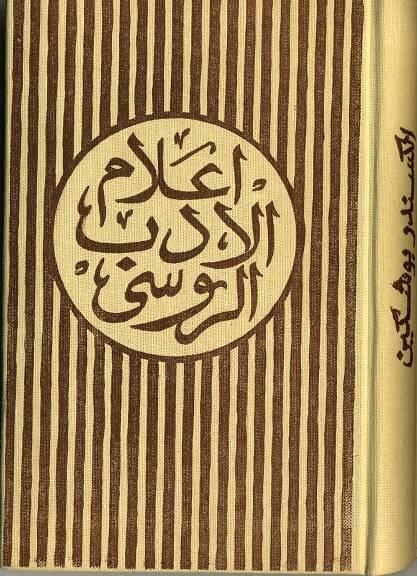 اعلام
الادب
الروسى
الكسندر بوشكين